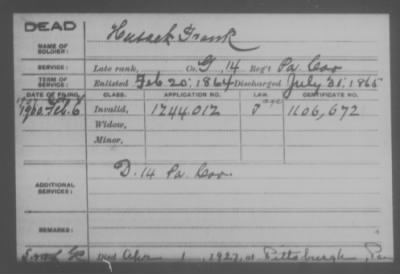 DEAD
NAME OF SOLDIER:
Husack Frank
SERVICE:
Late rank, Co. G, 14 Reg't Pa. Cav
TERM OF SERVICE:
Enlisted Feb 20, 1864 Discharged July 31, 1865
DATE OF FILING. CLASS. APPLICATION NO. LAW. CERTIFICATE NO.
1900. Feb. 6 Invalid, 1244,012 1106,672
Widow,
Minor,
ADDITIONAL SERVICES:
D. 14 Pa. Cav.
REMARKS:
Died Apr 1, 1927, at Pittsburgh, Pa